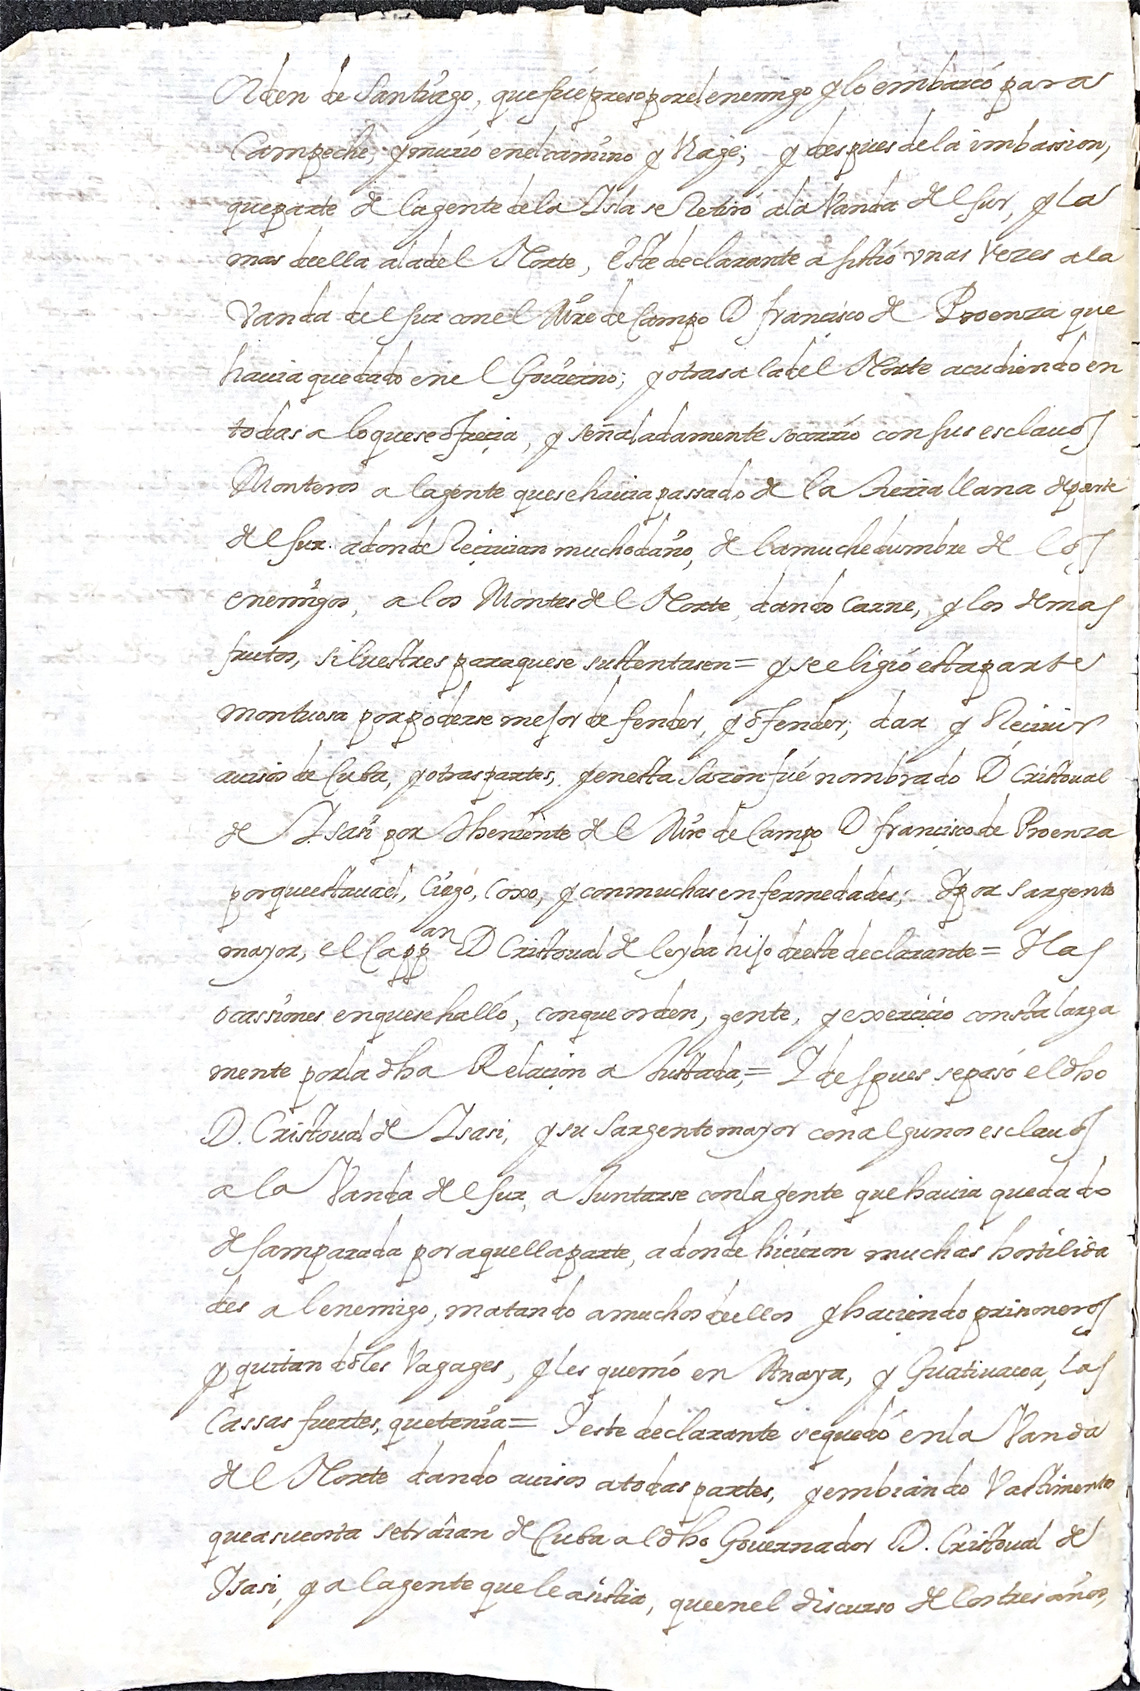 Orden de Santiago, que fué preso por el enemigo y lo embarcó para
Campeche, y murio en el camino y Viage; y despues de la imbassion,
que parte de la gente de la Isla se Retiró a la Vanda del Sur, y la
mas de ella a la del Norte, Este declarante assistió vnas Vezes a la
Vanda del Sur con el Mre de Campo D francisco de Proenza que
hauia quedado en el Gouierno; y otras a la del Norte acudiendo en
todas a lo que se ofrecia, y señaladamente socorrio con sus esclauos
Monteros a la gente que se hauia passado de la tierra llana de parte
del Sur. adonde Reciuian mucho daño, de la muchedumbre de los
enemigos, a los Montes del Norte, dando Carne, y los demas
frutos, siluestres para que se sustentasen = y se eligió esta parte
montuosa por poderse mejor defender, y ofender, dar y Reciuir
auisos de Cuba, y otras partes, y en esta Sazon fué nombrado D Cristoual
de Isasi por Theniente del Mre de Campo D francisco de Proenza
porque estaua el, Ciego, Coxo, y con muchas enfermedades; Y por Sargento
mayor, el Cappan D Cristoual de leyba hijo de este declarante = Y las
ocassiones en que se halló, con que orden, gente, y exercicio consta larga
mente por la dha Relacion a Justada, = Y despues se pasó el dho
D. Cristoual de Isasi, y su Sargento mayor con algunos esclauos
a la Vanda del Sur, a Juntarse con la gente que hauia quedado
desamparada por aquella parte, adonde hicieron muchas hostilida
des al enemigo, matando a muchos de ellos y haciendo prisioneros
y quitandoles Vagages, y les quemó en Anaya, y Guatiuacoa, las
Cassas fuertes, que tenia = Y este declarante se quedó en la Vanda
del Norte dando auisos a todas partes, y embiando Vastimento
que a su costa se traian de Cuba al dho Gouernador D. Cristoual de
Isasi, y a la gente que le asistia, que en el discurso de los tres años,